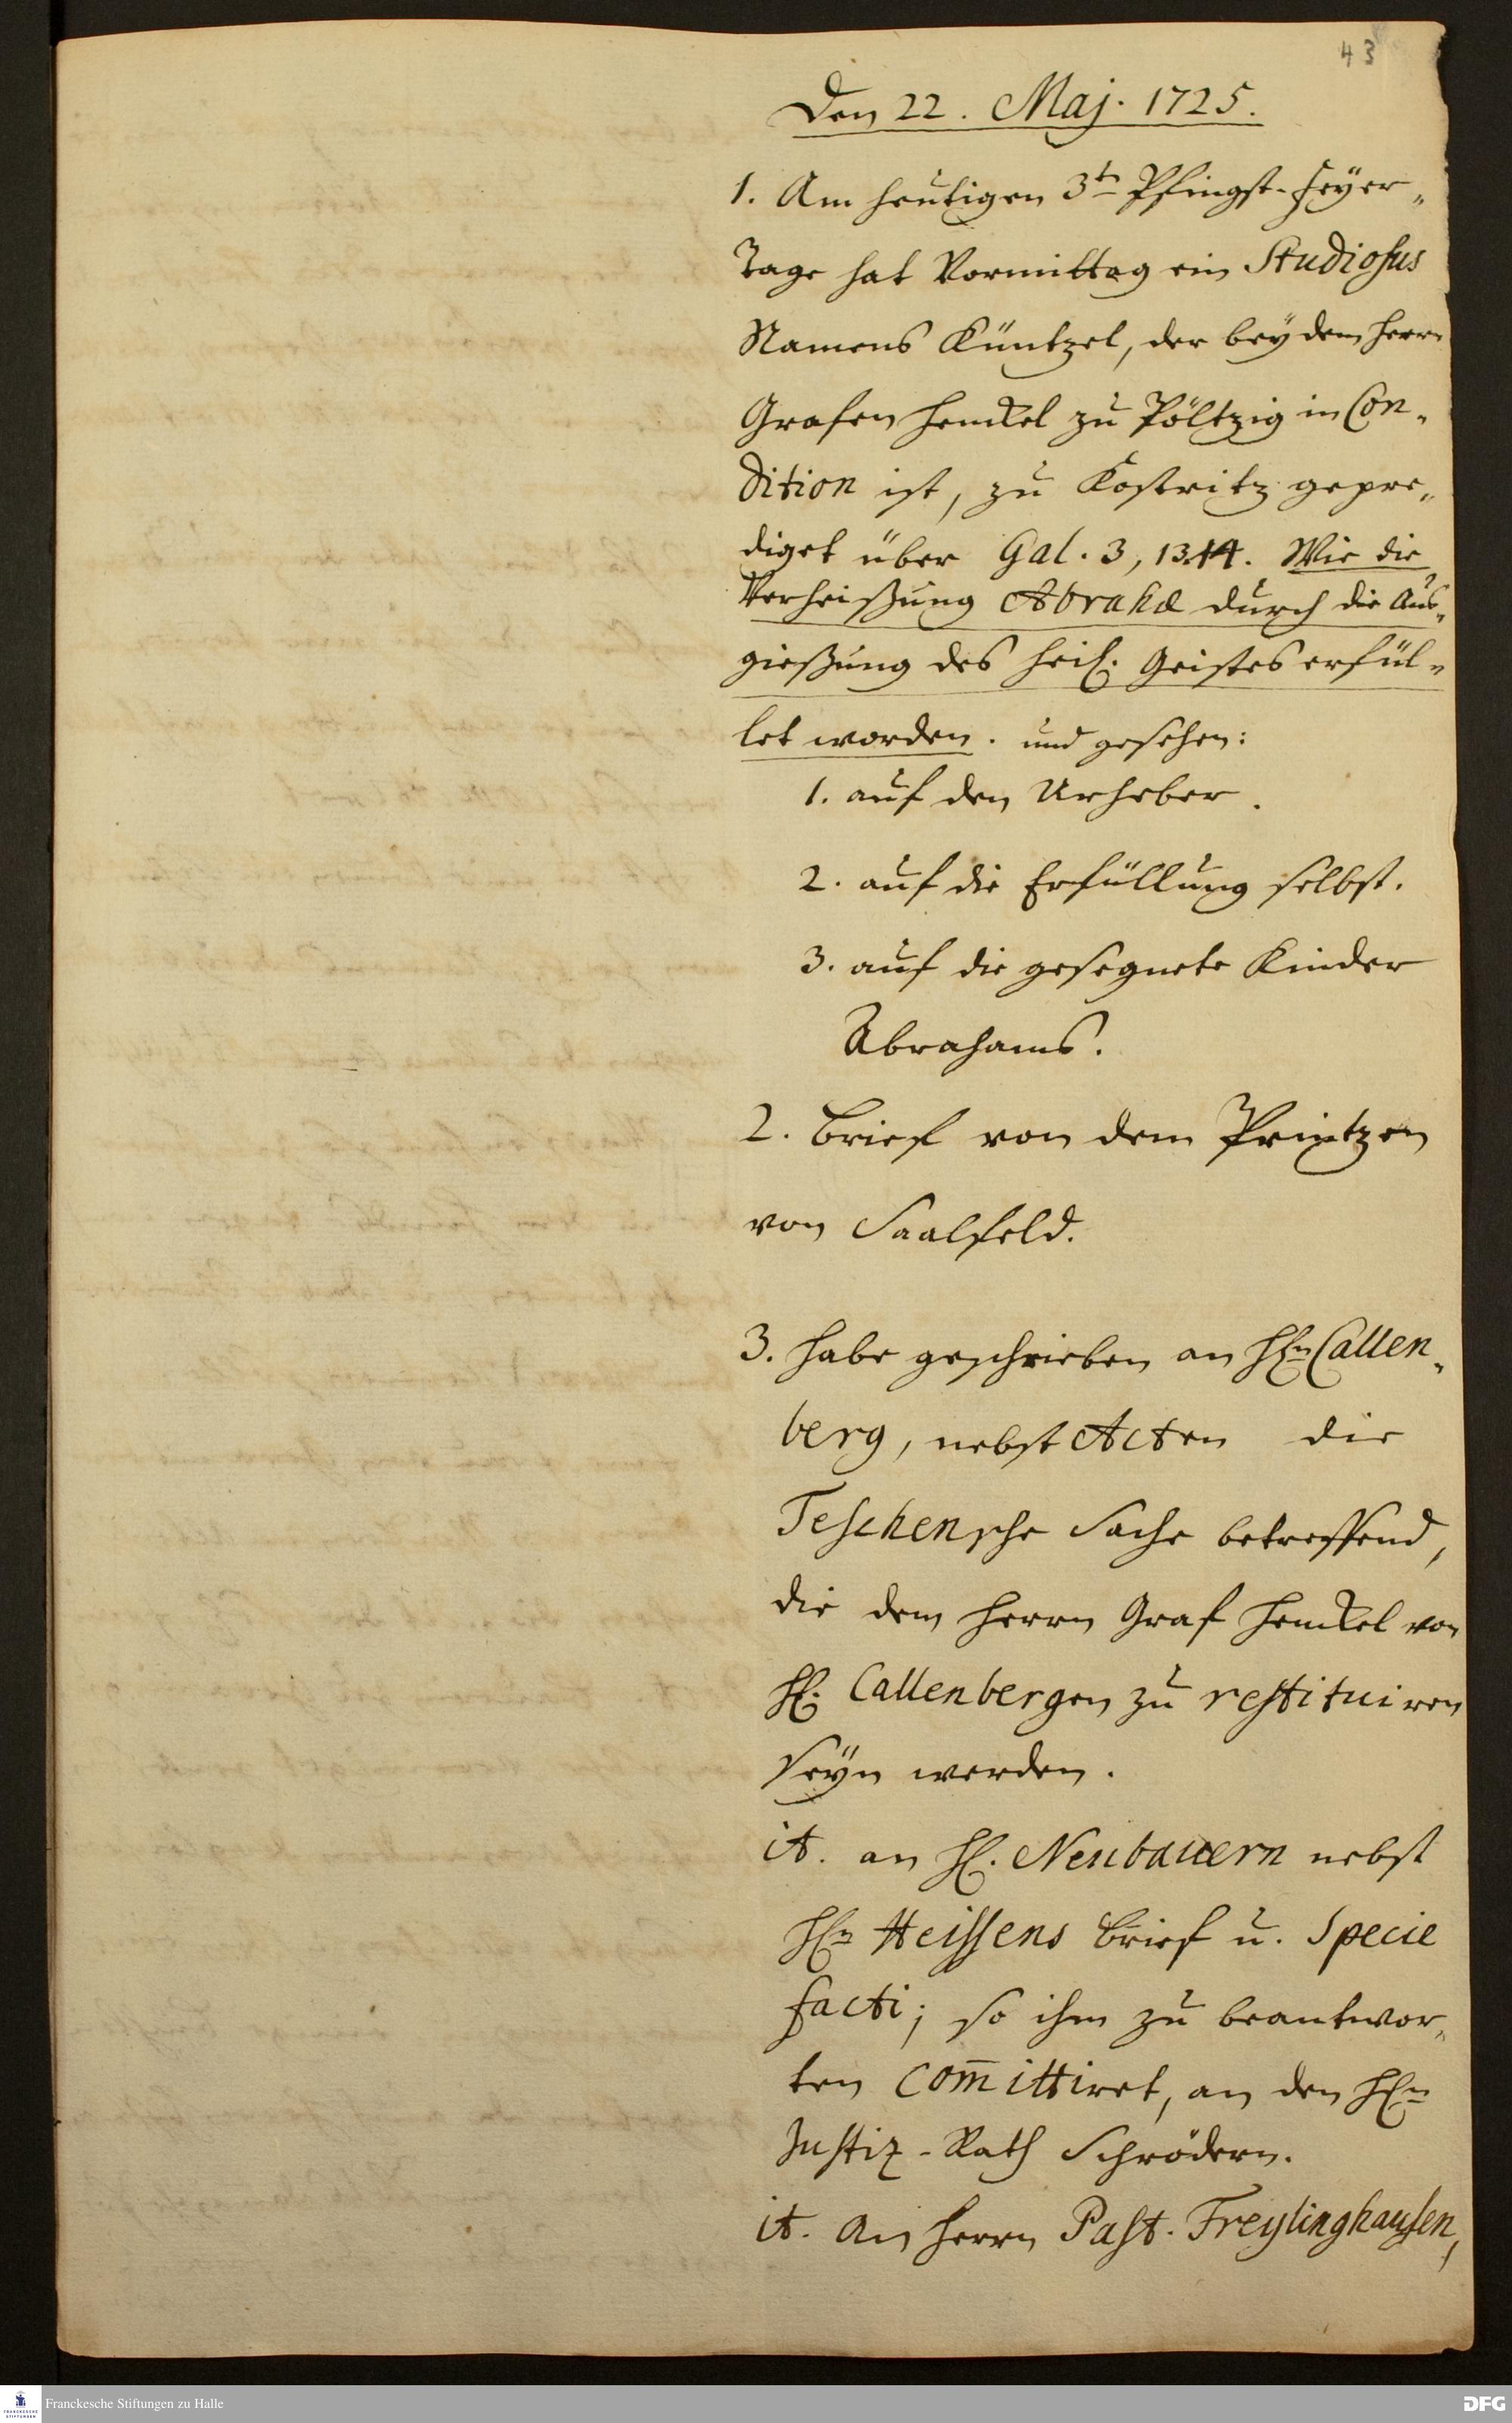 43
Den 22. Maj. 1725.
1. Am heutigen 3ten Pfingst-Feyer-
Tage hat Vormittag ein Studiosus
Namens Küntzel, der bey dem Herrn
Grafen Henckel zu Pöltzig in Con-
dition ist, zu Köstritz gepre-
diget über Gal. 3, 13.14. Wie die
Verheißung Abrahæ durch die Aus-
gießung des Heil. Geistes erfül-
let worden. und gesehen:
1. auf den Urheber.
2. auf die Erfüllung selbst.
3. auf die gesegnete Kinder
Abrahams.
2. Brief von dem Printzen
von Saalfeld.
3. Habe geschrieben an HEn Callen-
berg, nebst Acten die
Teschensche Sache betreffend,
die dem Herrn Graf Henckel von
H. Callenbergen zu restituiren
seyn werden.
it. an H. Neubauern nebst
HEn Heissens Brief u. Specie
facti; so ihm zu beantwor-
ten com̄ittiret, an den HEn
Justiz-Rath Schrödern.
it. An Herrn Past. Freylinghausen,
Franckesche Stiftungen zu Halle
FRANCKESCHE STIFTUNGEN
DFG